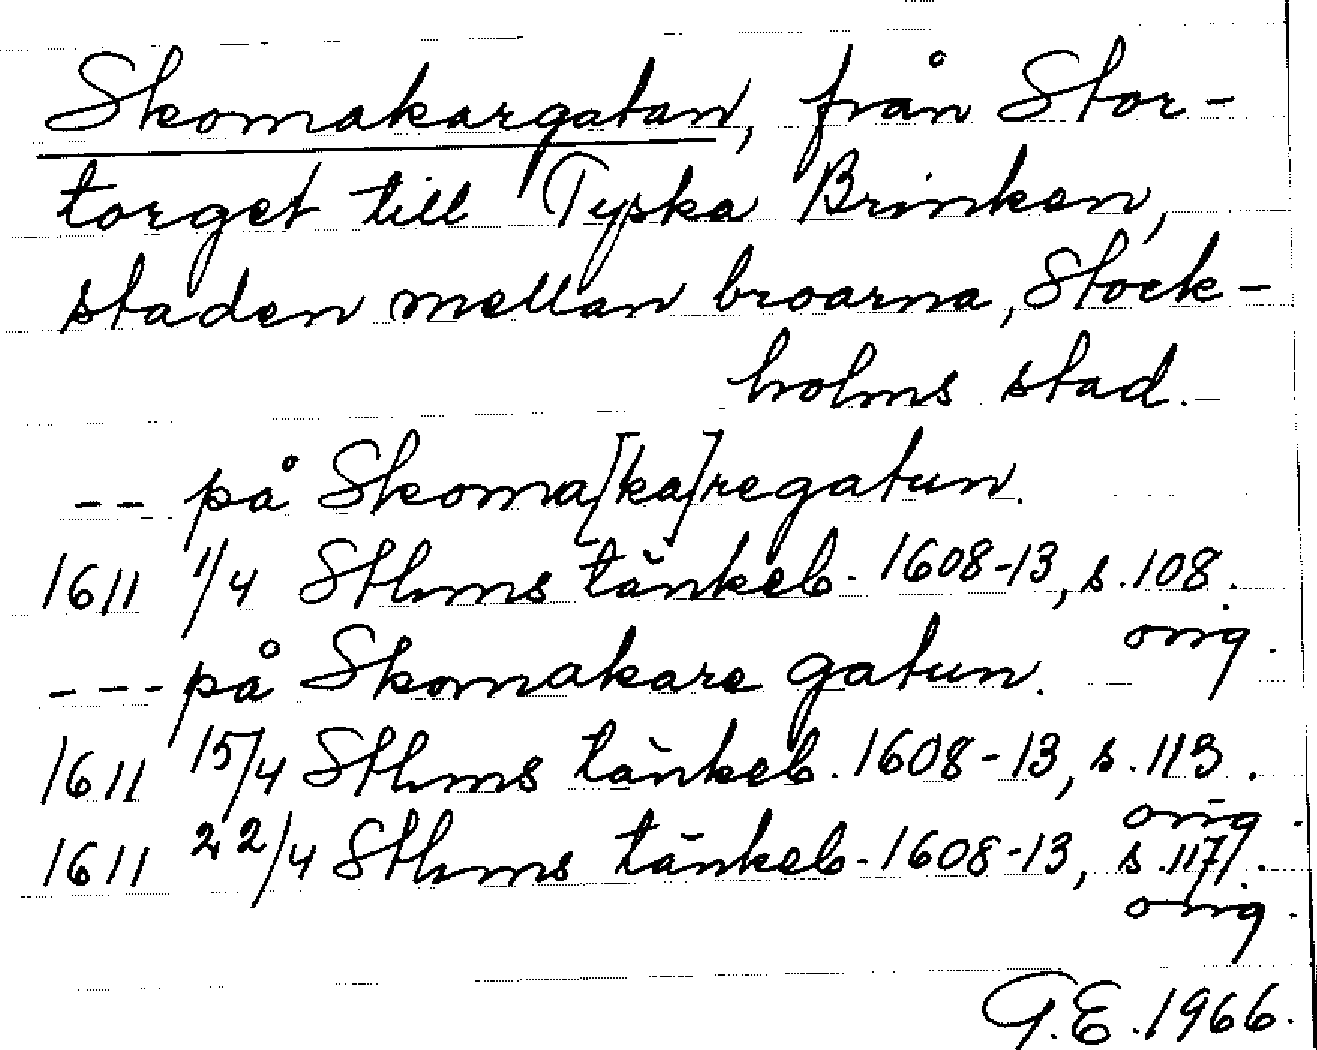 Skomakargatan, från Stor-
torget till Tyska Brinken,
staden mellan broarna, Stock-
holms stad.
-- på Skoma[ka]regatun.
1611 1/4 Sthms tänkeb. 1608-13, s.108.
orig.
--- på Skomakare gatun.
1611 15/4 Sthms tänkeb. 1608-13, s.113.
orig.
1611 22/4 Sthms tänkeb. 1608-13, s.117.
orig.
G.E. 1966.